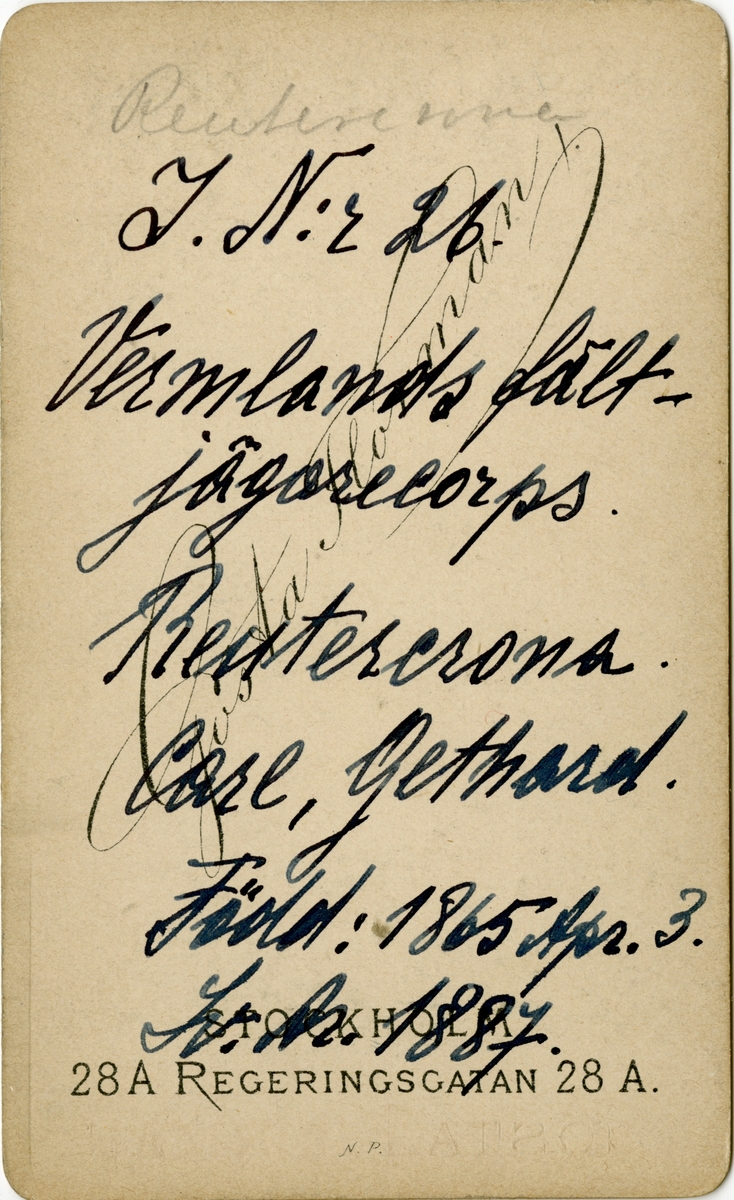 Reutercrona
I. N:r 26.
Vermlands fält-
jägarecorps.
Reutercrona.
Carl, Gethard.
Född: 1865 Apr. 3.
1887.
Gösta Florman
STOCKHOLM
28A REGERINGSGATAN 28 A.
N. P.